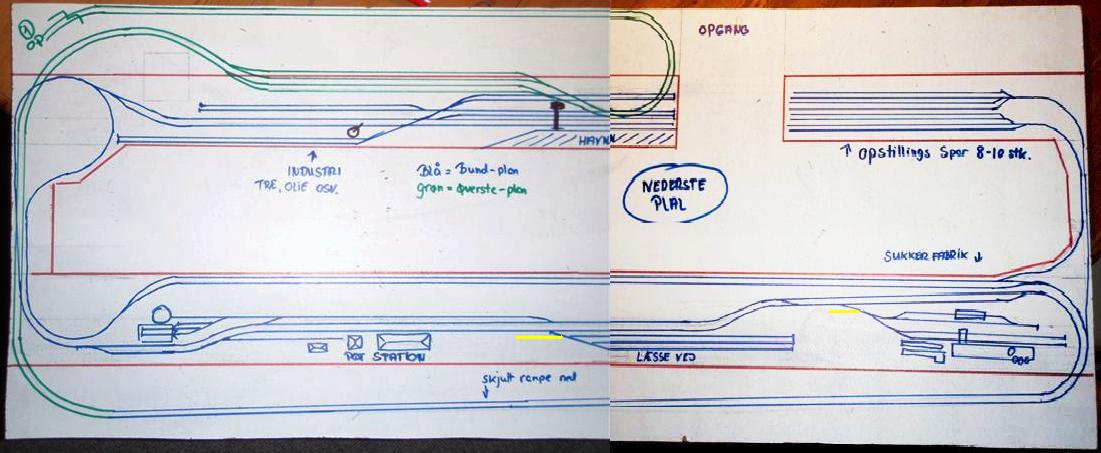 1
OP
OPGANG
HAVN
INDUSTRI
TRE, OLIE OSV.
Blå = Bund-plan
grøn = øverste-plan
NEDERSTE
PLAL
↑ Opstillings Spor 8-10 stk.
SUKKER FABRIK ↓
STATION
LÆSSE VEJ
skjult rampe ned